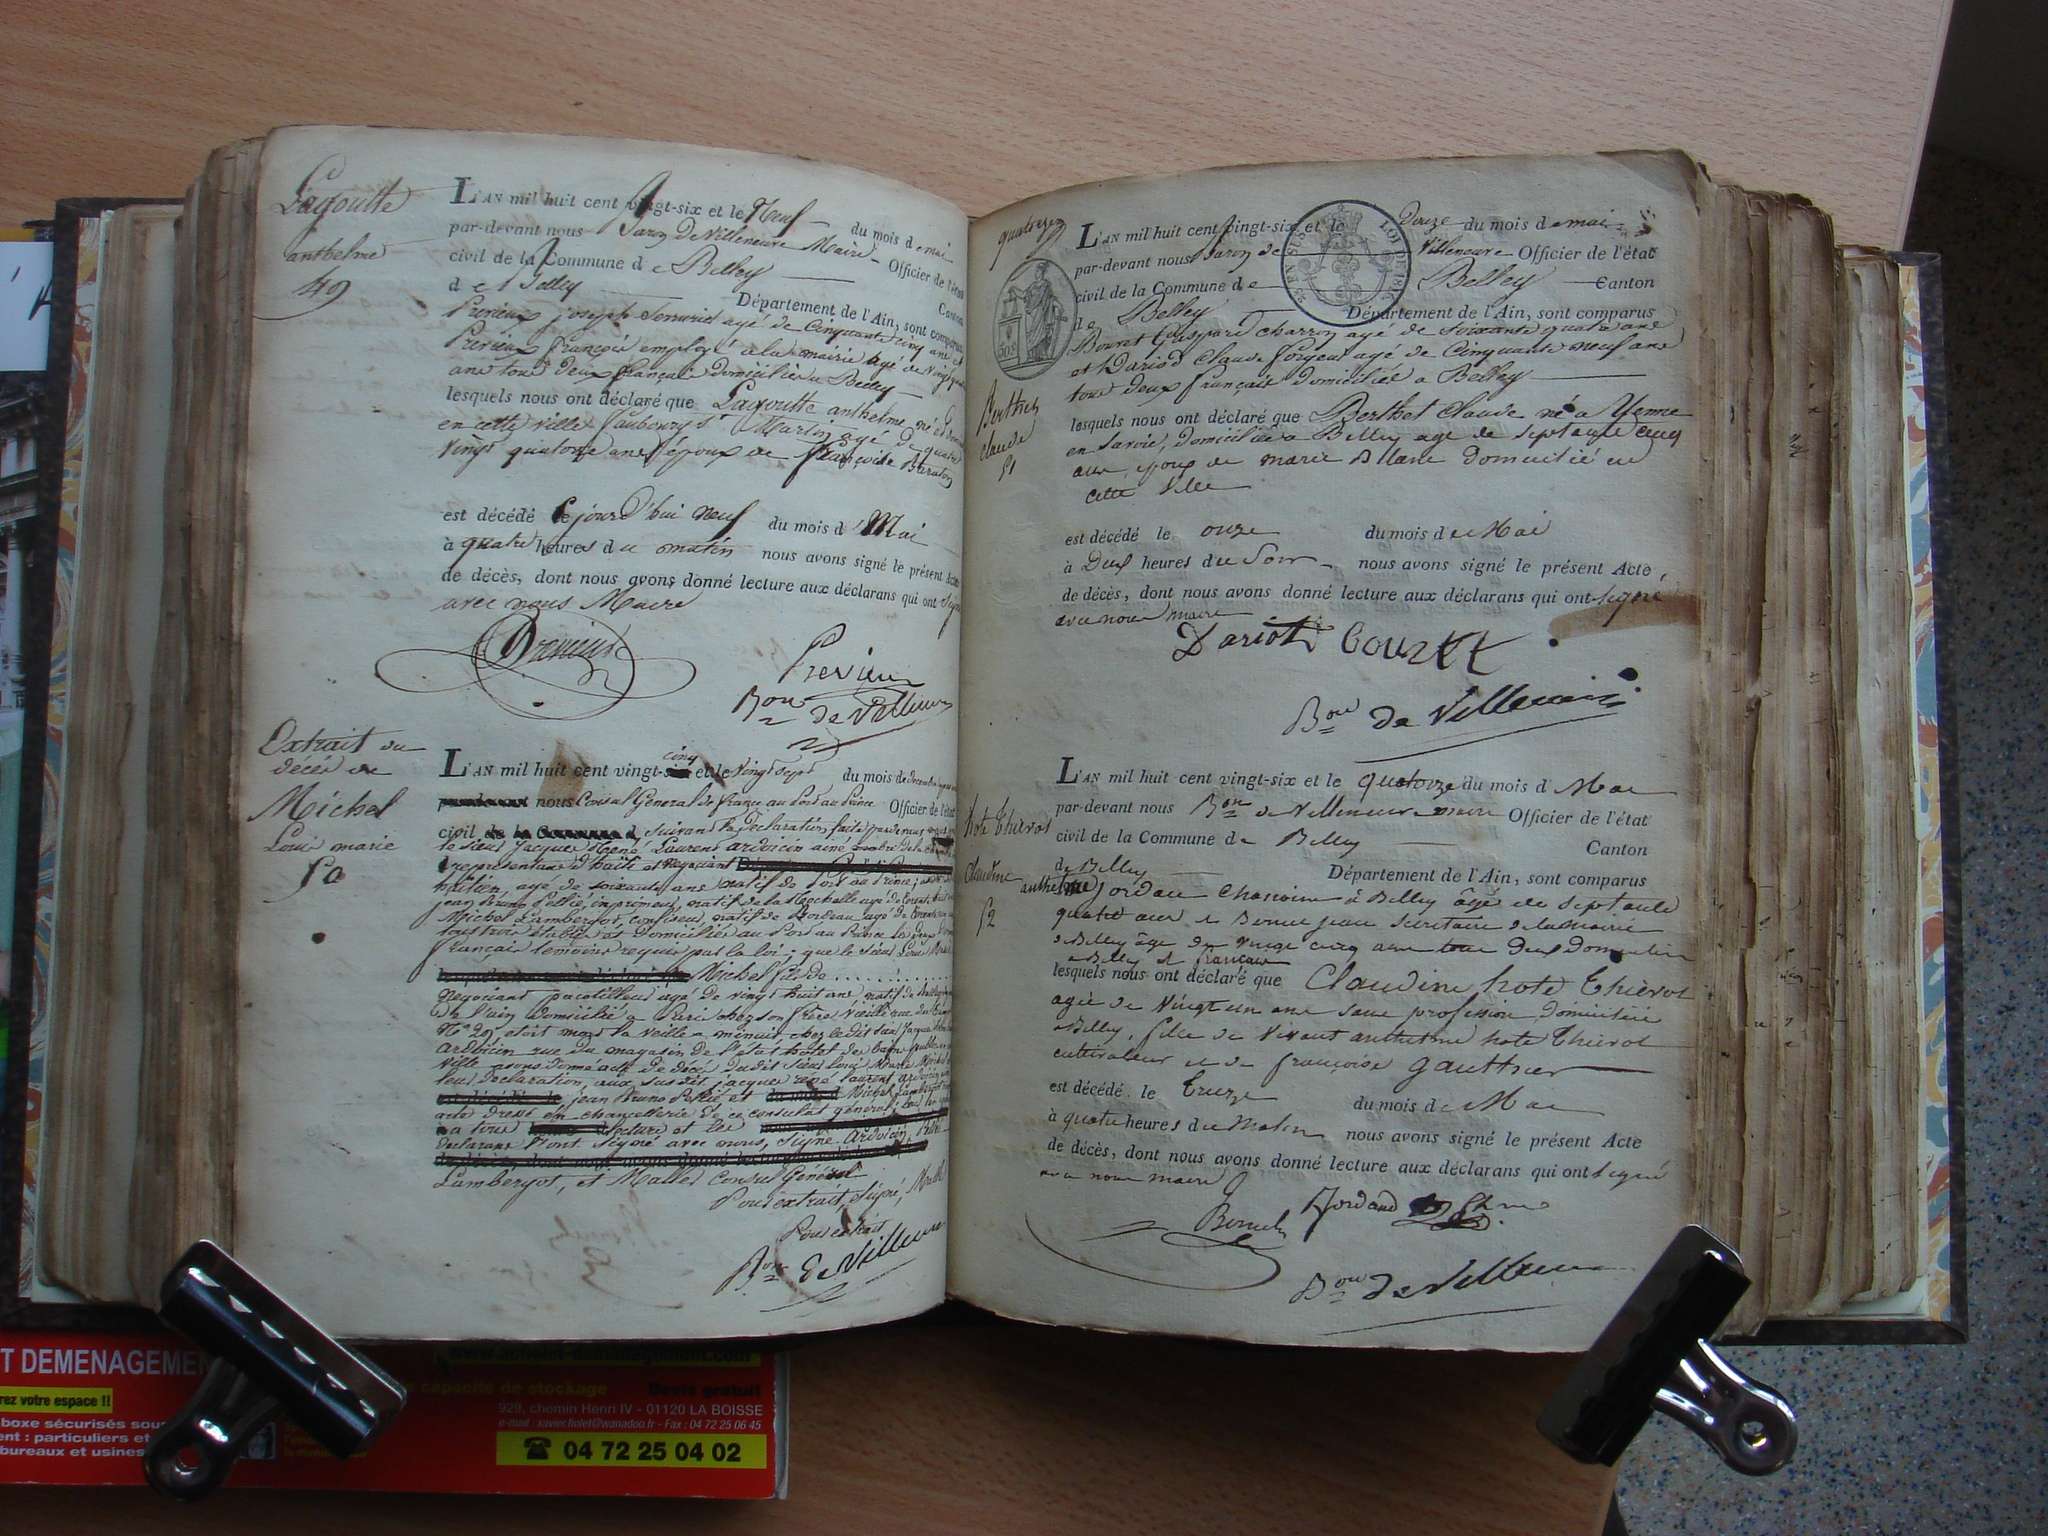 Lagoutte
anthelme
49
L'AN mil huit cent vingt-six et le Neuf du mois de mai
par-devant nous Baron De Villeneuve Maire Officier de l'état
civil de la Commune de Belley Canton
de Belley Département de l'Ain, sont comparus
Prévieux joseph Serrurier agé de Cinquante cinq ans et
Prévieux françois employé a la mairie agé de Vingt
ans tous deux français domiciliés a Belley
lesquels nous ont déclaré que Lagoutte anthelme né et
en cette ville faubourg St Martin agé de quatre
vingt quatorze ans époux de françoise
est décédé le jourd'hui neuf du mois de Mai
à quatre heures du matin nous avons signé le présent Acte
de décès, dont nous avons donné lecture aux déclarans qui ont signé
avec nous Maire
Prévieux
Prévieux
Bon de Villeneuve
Extrait du
décés de
Michel
Louis marie
50
L'AN mil huit cent vingt-cinq et le Vingt Sept du mois de decembre
nous Consul Général de france au Port au Prince Officier de l'état
civil suivant la déclaration faite pardevant nous
le sieur Jacques René Laurent ardoüin ainé membre de la
représentans d'haïti et négociant
haïtien, agé de soixante ans natif de Port au Prince;
jean Bruno Pellié, imprimeur, natif de la Rochelle agé de
Michel Lambergot, confiseur, natif de Bordeau agé de
tous trois établis et domiciliés au Port au Prince les deux
français temoins requis par la loi; que le sieur Louis Marie
Michel fils de . . . . . . . . . .
négociant pacotilleur agé de vingt huit ans, natif de
de l'ain domicilié a Paris chez son frère vieille rue du
No 20, etoit mort la veille a minuit, chez le dit sieur Jacques
Ardoüin rue du magasin de l'état hôtel des bains
ville avons donné acte de décés du dit sieur Louis Marie Michel
leur declaration, aux susdits jacques réné laurent ardoüin
jean Bruno Pellié et Michel Lambergot
acte dressé en chancellerie de ce consulat général;
lecture et les
declarans l'ont signé avec nous, signé Ardoüin, Pellié
Lambergot, et Mallet Consul Général
Pour extrait, signé,
Pour extrait
Bon de Villeneuve
quatorze
50 c
25 EN SUS LOI DU
Berthet
claude
51
L'AN mil huit cent vingt-six et le Douze du mois de mai
par-devant nous Baron de Villeneuve Officier de l'état
civil de la Commune de Belley Canton
de Belley Département de l'Ain, sont comparus
Bouret Gaspard charron agé de soixante quatre ans
et Dariod Claude forgeur agé de Cinquante neuf ans
tous deux français domiciliés a Belley
lesquels nous ont déclaré que Berthet claude né a Yenne
en Savoie, domicilié a Belley agé de septante cinq
ans, époux de marie domicilié en
cette ville
est décédé le onze du mois de Mai
à Deux heures du Soir nous avons signé le présent Acte,
de décès, dont nous avons donné lecture aux déclarans qui ont signé
avec nous maire
Dariot
Bon de Villeneuve
hote Thievot
Claudine
52
L'AN mil huit cent vingt-six et le quatorze du mois de Mai
par-devant nous Bon de Villeneuve maire Officier de l'état
civil de la Commune de Belley Canton
de Belley Département de l'Ain, sont comparus
anthelme jordan Chanoine à Belley âgé de septante
quatre ans et jean secrétaire de la mairie
de Belley âgé de vingt cinq ans tous deux domiciliés
a Belley et français
lesquels nous ont déclaré que Claudine hote Thievot
agée de vingt un ans sans profession domiciliée
a Belley, fille de vivant anthelme hote Thievot
cultivateur et de françoise gauthier
est décédé le treize du mois de Mai
à quatre heures du Matin nous avons signé le présent Acte
de décès, dont nous avons donné lecture aux déclarans qui ont signé
avec nous maire
Jordan
Bon de Villeneuve
T DEMENAGEMEN
rez votre espace !!
boxe sécurisés sous
ent : particuliers et
bureaux et usines
capacité de stockage Devis gratuit
929, chemin Henri IV - 01120 LA BOISSE
Fax : 04 72 25 06 45
04 72 25 04 02